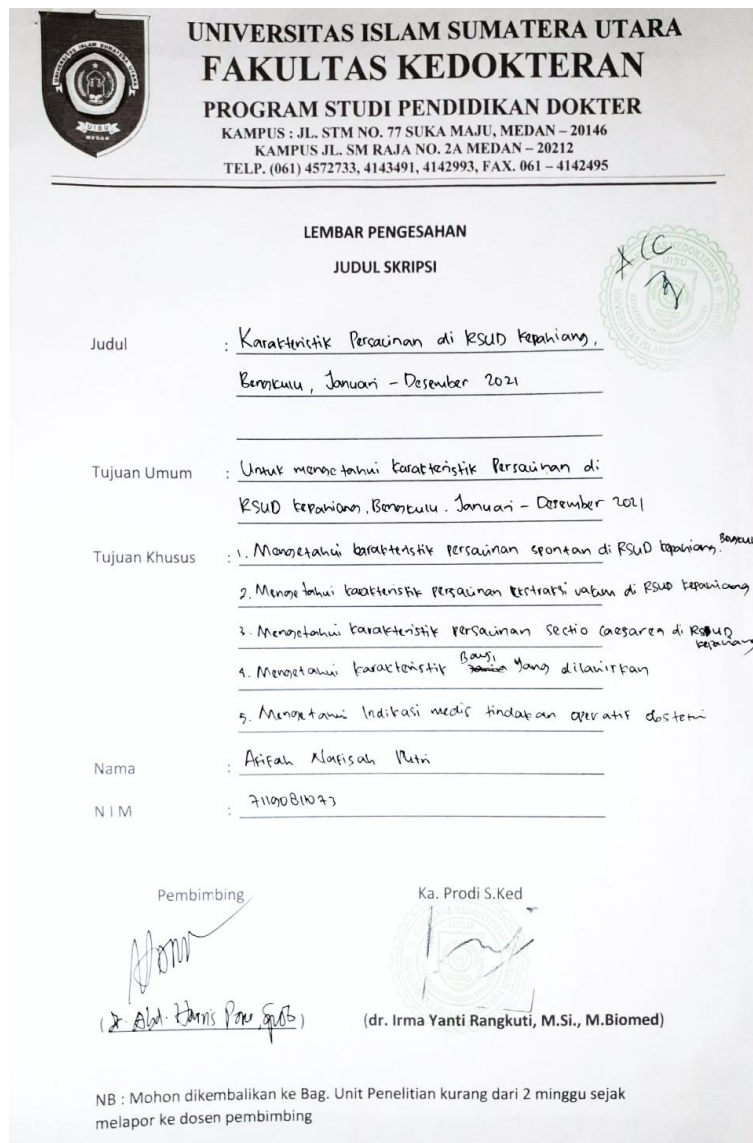 UNIVERSITAS ISLAM SUMATERA UTARA
UISU
MEDAN
UNIVERSITAS ISLAM SUMATERA UTARA
FAKULTAS KEDOKTERAN
PROGRAM STUDI PENDIDIKAN DOKTER
KAMPUS : JL. STM NO. 77 SUKA MAJU, MEDAN – 20146
KAMPUS JL. SM RAJA NO. 2A MEDAN – 20212
TELP. (061) 4572733, 4143491, 4142993, FAX. 061 – 4142495
LEMBAR PENGESAHAN
JUDUL SKRIPSI
ACC
Judul : Karakteristik Persalinan di RSUD Kepahiang,
Bengkulu, Januari – Desember 2021
Tujuan Umum : Untuk mengetahui karakteristik Persalinan di
RSUD Kepahiang, Bengkulu. Januari – Desember 2021
Tujuan Khusus : 1. Mengetahui karakteristik persalinan spontan di RSUD Kepahiang. Bengkulu
2. Mengetahui karakteristik persalinan ekstraksi vakum di RSUD Kepahiang
3. Mengetahui karakteristik persalinan sectio caesarea di RSUD Kepahiang
4. Mengetahui karakteristik Bayi yang dilahirkan
5. Mengetahui Indikasi medis tindakan operatif obstetri
Nama : Afifah Nafisah Putri
NIM :
Pembimbing Ka. Prodi S.Ked
(dr. Abd. Harris Pane, SpOG) (dr. Irma Yanti Rangkuti, M.Si., M.Biomed)
NB : Mohon dikembalikan ke Bag. Unit Penelitian kurang dari 2 minggu sejak
melapor ke dosen pembimbing